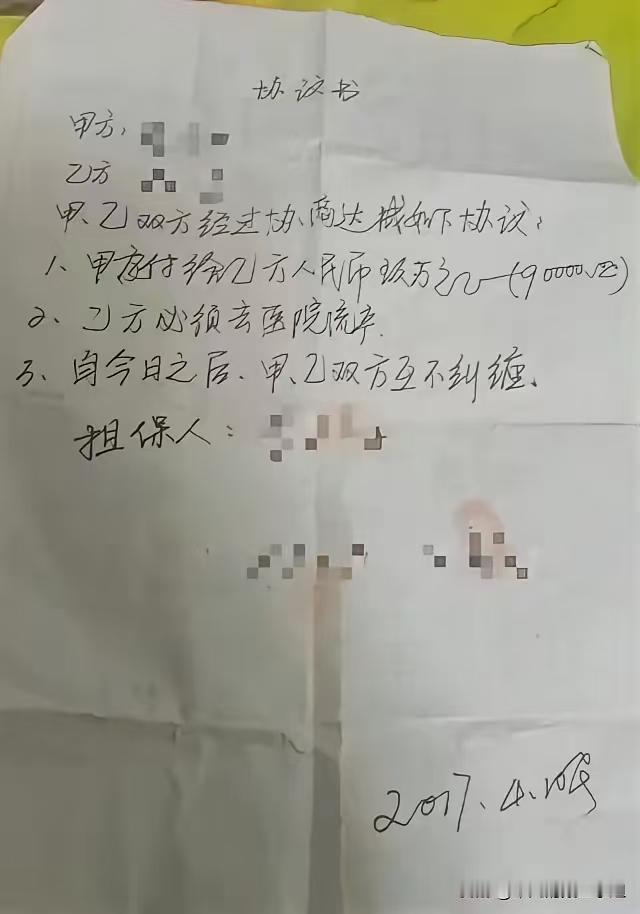 协议书
甲方:
乙方
甲、乙双方经过协商达成如下协议:
1、甲方付给乙方人民币玖万元(90000.
2、乙方必须去医院流产.
3、自今日之后、甲、乙双方互不纠缠.
担保人:
2017.4.10号